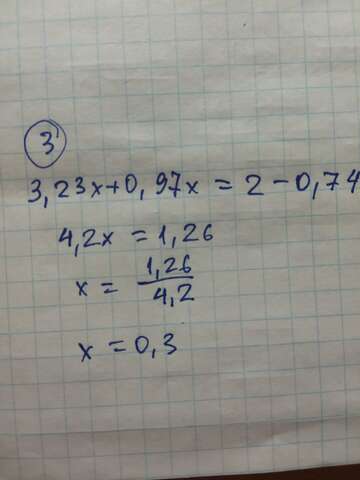 3
3,23x+0,97x = 2-0,74
4,2x = 1,26
x = 1,26/4,2
x = 0,3